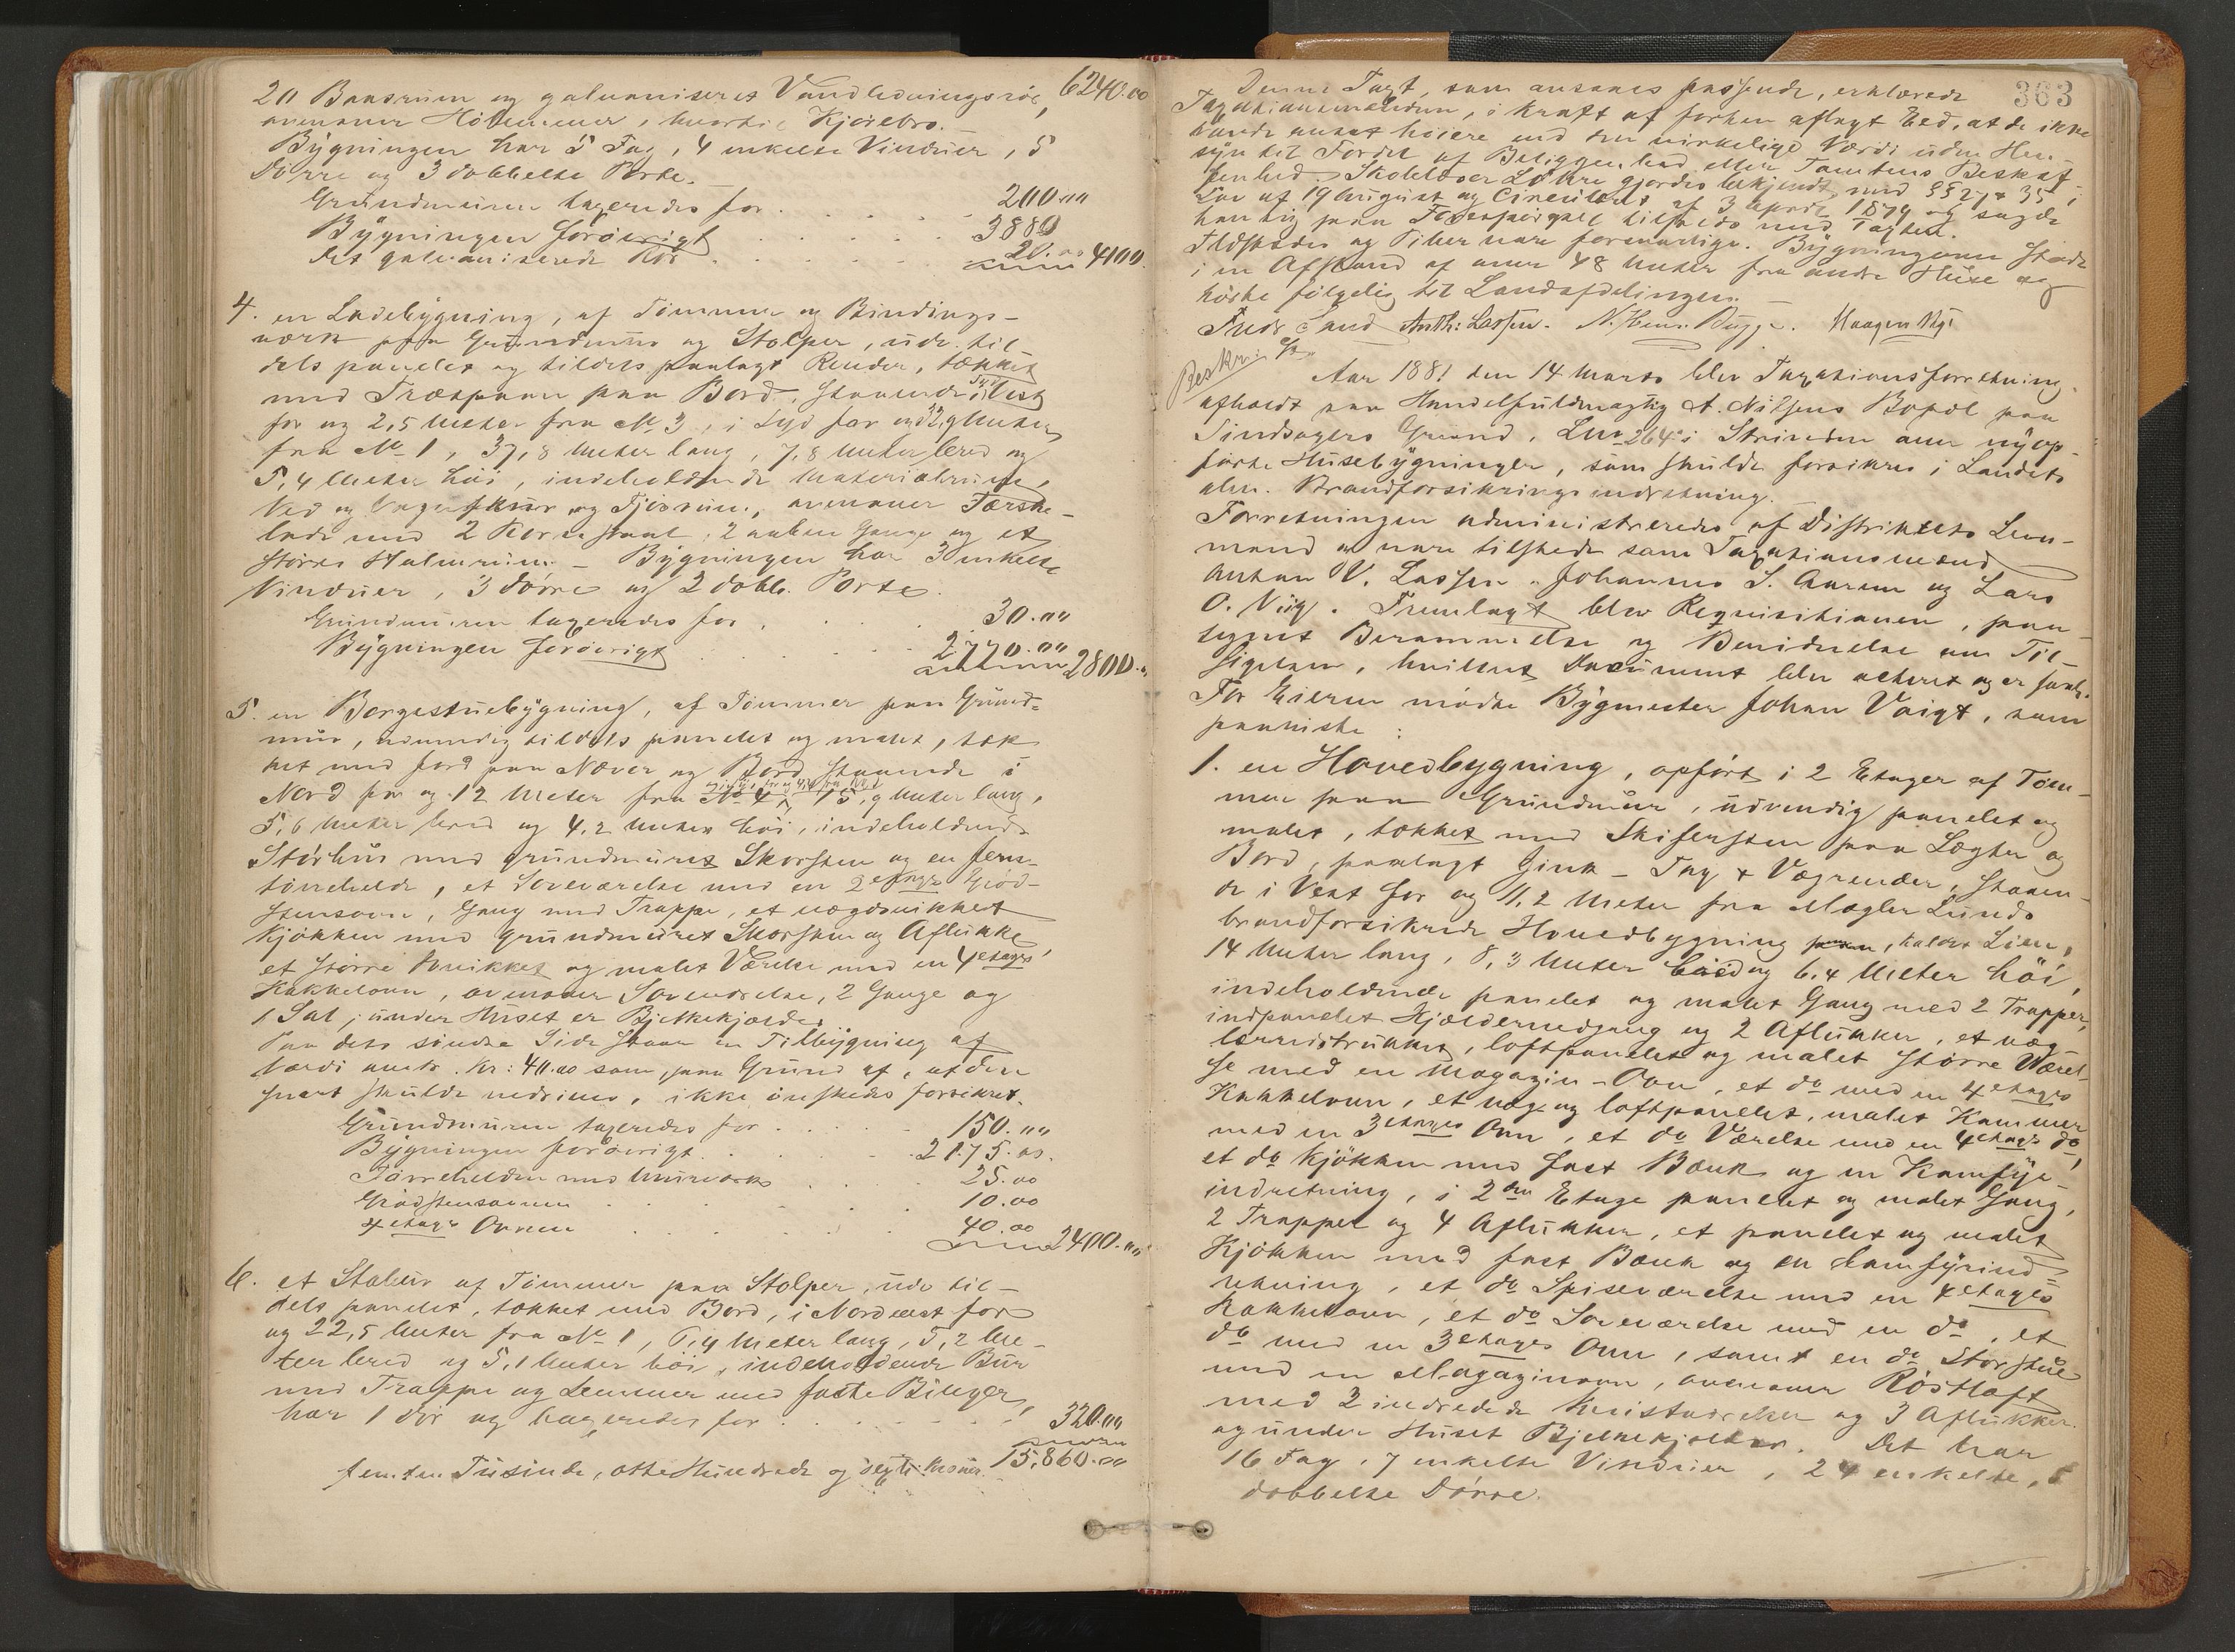 20 Baasrum og galvaniseret Vandledningsrör, 6240.00
ovenover Höbeummer, hvortil Kjörebro.
Bÿgningen har 5 Fag, 4 enkelte Vinduer, 5
Dörre og 3 dobbelte Porte.
Grundmuren taxeredes for . . . 200 „„
Bÿgningen forövrigt . . . 3880
det galvaniserede Rör . . . 20.00 4100.
4. en Ladebÿgning, af Tömmer og Bindings-
værk paa Grundmur og Stolper, udv. til
dels panelet og tildels paalagt Render, tækket
med Træspaan paa Bord, staaende i Vest
for og 2,5 Meter fra No 3, i Syd for og 32,9 Meter
fra No 1, 37,8 Meter lang, 7,8 Meter bred og
5,4 Meter höi, indeholdende Materialrum,
Ved og Vognskur og Tjörrum, ovenover Tærske-
lade med 2 Kornstaal, 2 aabne Gange og et
större Halmrum. – Bÿgningen har 3 enkelte
Vinduer, 3 Dörre og 2 dobb. Porte.
Grundmuren taxeredes for . . . 30.„„
Bÿgningen forövrigt . . . 2770.„„ 2800.„
5. en Borgestuebÿgning, af Tömmer paa Grund-
mur, udvendig tildels panelet og malet, tæk
ket med Jord paa Næver og Bord, staaende i
Nord for og 12 Meter fra No 4, 15,9 Meter lang,
5,6 Meter bred og 4,2 Meter höi, indeholdende
Störhus med grundmuret Skorsten og en Jern-
törrehelde, et Soveværelse med en 2 etages Gröd-
stensovn, Gang med Trappe, et vægsnikket
Kjökken med grundmuret Skorsten og Aflukke,
et större snikket og malet Værelse med en 4 etages
Kakkelovn, ovenover Soveværelse, 2 Gange og
1 Sal; under Huset er Bjelkekjælder.
Paa dets söndre Side staar en Tilbÿgning af
Værdi omtr. Kr: 40.00 som, paa Grund af, at den
snart skulde nedrives, ikke önskedes forsikret.
Grundmuren taxeredes for . . . 150.„„
Bÿgningen forövrigt . . . 2175.00.
Törrehelden med Murværk . . . 25.00
Grödstensovnen . . . 10.00
4 etages Ovnen . . . 40.00 2400.„„
6. et Stabur af Tömmer paa Stolper, udv til-
dels panelet, tækket med Bord, i Nordvest for
og 22,5 Meter fra No 1, 6,4 Meter lang, 5,2 Me-
ter bred og 5,1 Meter höi, indeholdende Bur
med Trappe og Lemmer med faste Binger,
har 1 Dör og taxeredes for . . . 320.„„
femten Tusinde, otte Hundrede og sexti Kroner. 15,860.00
363
Denne Taxt, som ansaaes passende, erklærede
Taxationsmændene, i kraft af forhen aflagt Eed, at de ikke
havde ansat höiere end den virkelige Værdi uden Hen-
syn til Fordel af Beliggenhed eller Tomtens Beskaf-
fenhed. Skatelover Löhre gjordes bekjendt med §§ 27 & 35 i
Lov af 19 August og Circulært af 3 April 1879 og sagde
han sig paa Forespörgsel tilfreds med Taxten.
Ildsteder og Piber vare forsvarlige. Bÿgningerne staae
i en Afstand af over 48 Meter fra andre Huse og
hörte fölgelig til Landafdelingen.
Fredr Sand Anth: Lassen. N. Henr. Bugge. Haagen Vig
Beskr:
Aar 1881 den 14 Marts blev Taxationsforretning
afholdt paa Handelsfuldmægtig A. Nilsens Bopæl paa
Tindsagers Grund, Lno 264 i Strinden over nÿop-
förte Husebÿgninger, som skulde forsikres i Landets
alm. Brandforsikringsindretning.
Forretningen administreredes af Distriktets Lens-
mand og vare tilstede som Taxationsmænd
Anton V. Lassen, Johannes S. Aaren og Lars
O. Viig. Fremlagt blev Requisitionen, paa-
tegnet Berammelse og Bevidnelse om Til-
sigelsen, hvilket Document blev akteret og er saal.
For Eieren mödte Bÿgmester Johan Voigt, som
paaviste:
1. en Hovedbygning, opfört i 2 Etager af Töm-
mer paa Grundmur, udvendig panelet og
malet, tækket med Skifersten paa Lægter og
Bord, paalagt Zink-Tag & Vægrender, staaen-
de i Vest for og 11,2 Meter fra Mægler Lunds
brandforsikrede Hovedbygning, kaldet Lien,
14 Meter lang, 8,3 Meter bred og 6,4 Meter höi,
indeholdende panelet og malet Gang med 2 Trapper,
indpanelet Kjældernedgang og 2 Aflukker, et væg
lærredstrukket, loftpanelet og malet större Værel-
se med en Magazin-Ovn, et do med en 4 etages
Kakkelovn, et væg og loftpanelet, malet Kammer
med en 3 etages Ovn, et do Værelse med en 4 etages do,
et do Kjökken med fast Bænk og en Komfÿr-
indretning, i 2den Etage panelet og malet Gang,
2 Trapper og 4 Aflukker, et panelet og malet
Kjökken med fast Bænk og en Komfÿrind-
retning, et do Spiseværelse med en 4 etages
Kakkelovn, et do Soveværelse med en do, et
do med en 3 etages Ovn, samt en do Storstue
med en Magazinovn, ovenover Röstloft
med 2 indredede Kvistværelser og 3 Aflukker
og under Huset Bjelkekjælder. Det har
16 Fag, 7 enkelte Vinduer, 24 enkelte, 5
dobbelte Dörre.